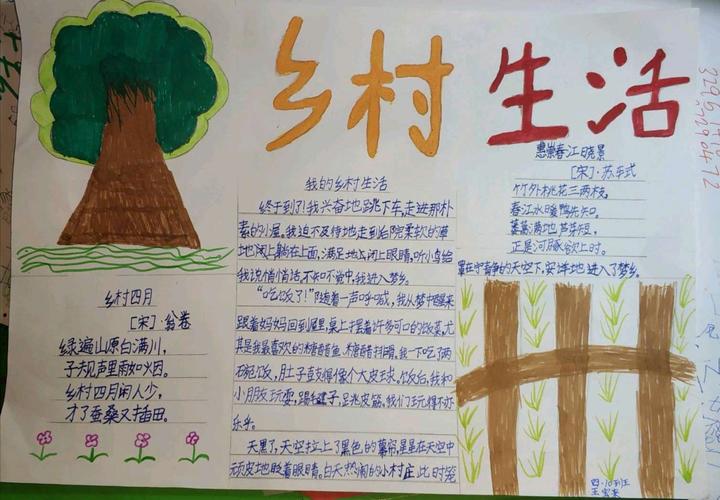 乡村生活
我的乡村生活
终于到了!我兴奋地跳下车,走进那朴
素的小屋。我迫不及待地走到后院柔软的草
地上躺在上面,满足地闭上眼睛,听小鸟给
我说悄悄话,不知不觉中,我进入梦乡。
“吃饭了!”随着一声呼喊,我从梦中醒来
跟着妈妈回到屋里,桌上摆着许多可口的饭菜,尤
其是我最喜欢的糖醋鱼,糖醋排骨,我一下吃了两
碗饭,肚子直撑得像个大皮球。饭后,我和
小朋友玩耍,踢毽子,跳皮筋,我们玩得不亦
乐乎。
天黑了,天空拉上了黑色的幕帘,星星在天空中
顽皮地眨着眼睛。白天热闹的小村庄此时笼
罩在宁静的天空下,安详地进入了梦乡。
惠崇春江晓景
[宋]·苏轼
竹外桃花三两枝,
春江水暖鸭先知。
蒌蒿满地芦芽短,
正是河豚欲上时。
乡村四月
[宋]·翁卷
绿遍山原白满川,
子规声里雨如烟。
乡村四月闲人少,
才了蚕桑又插田。
四·10班
王